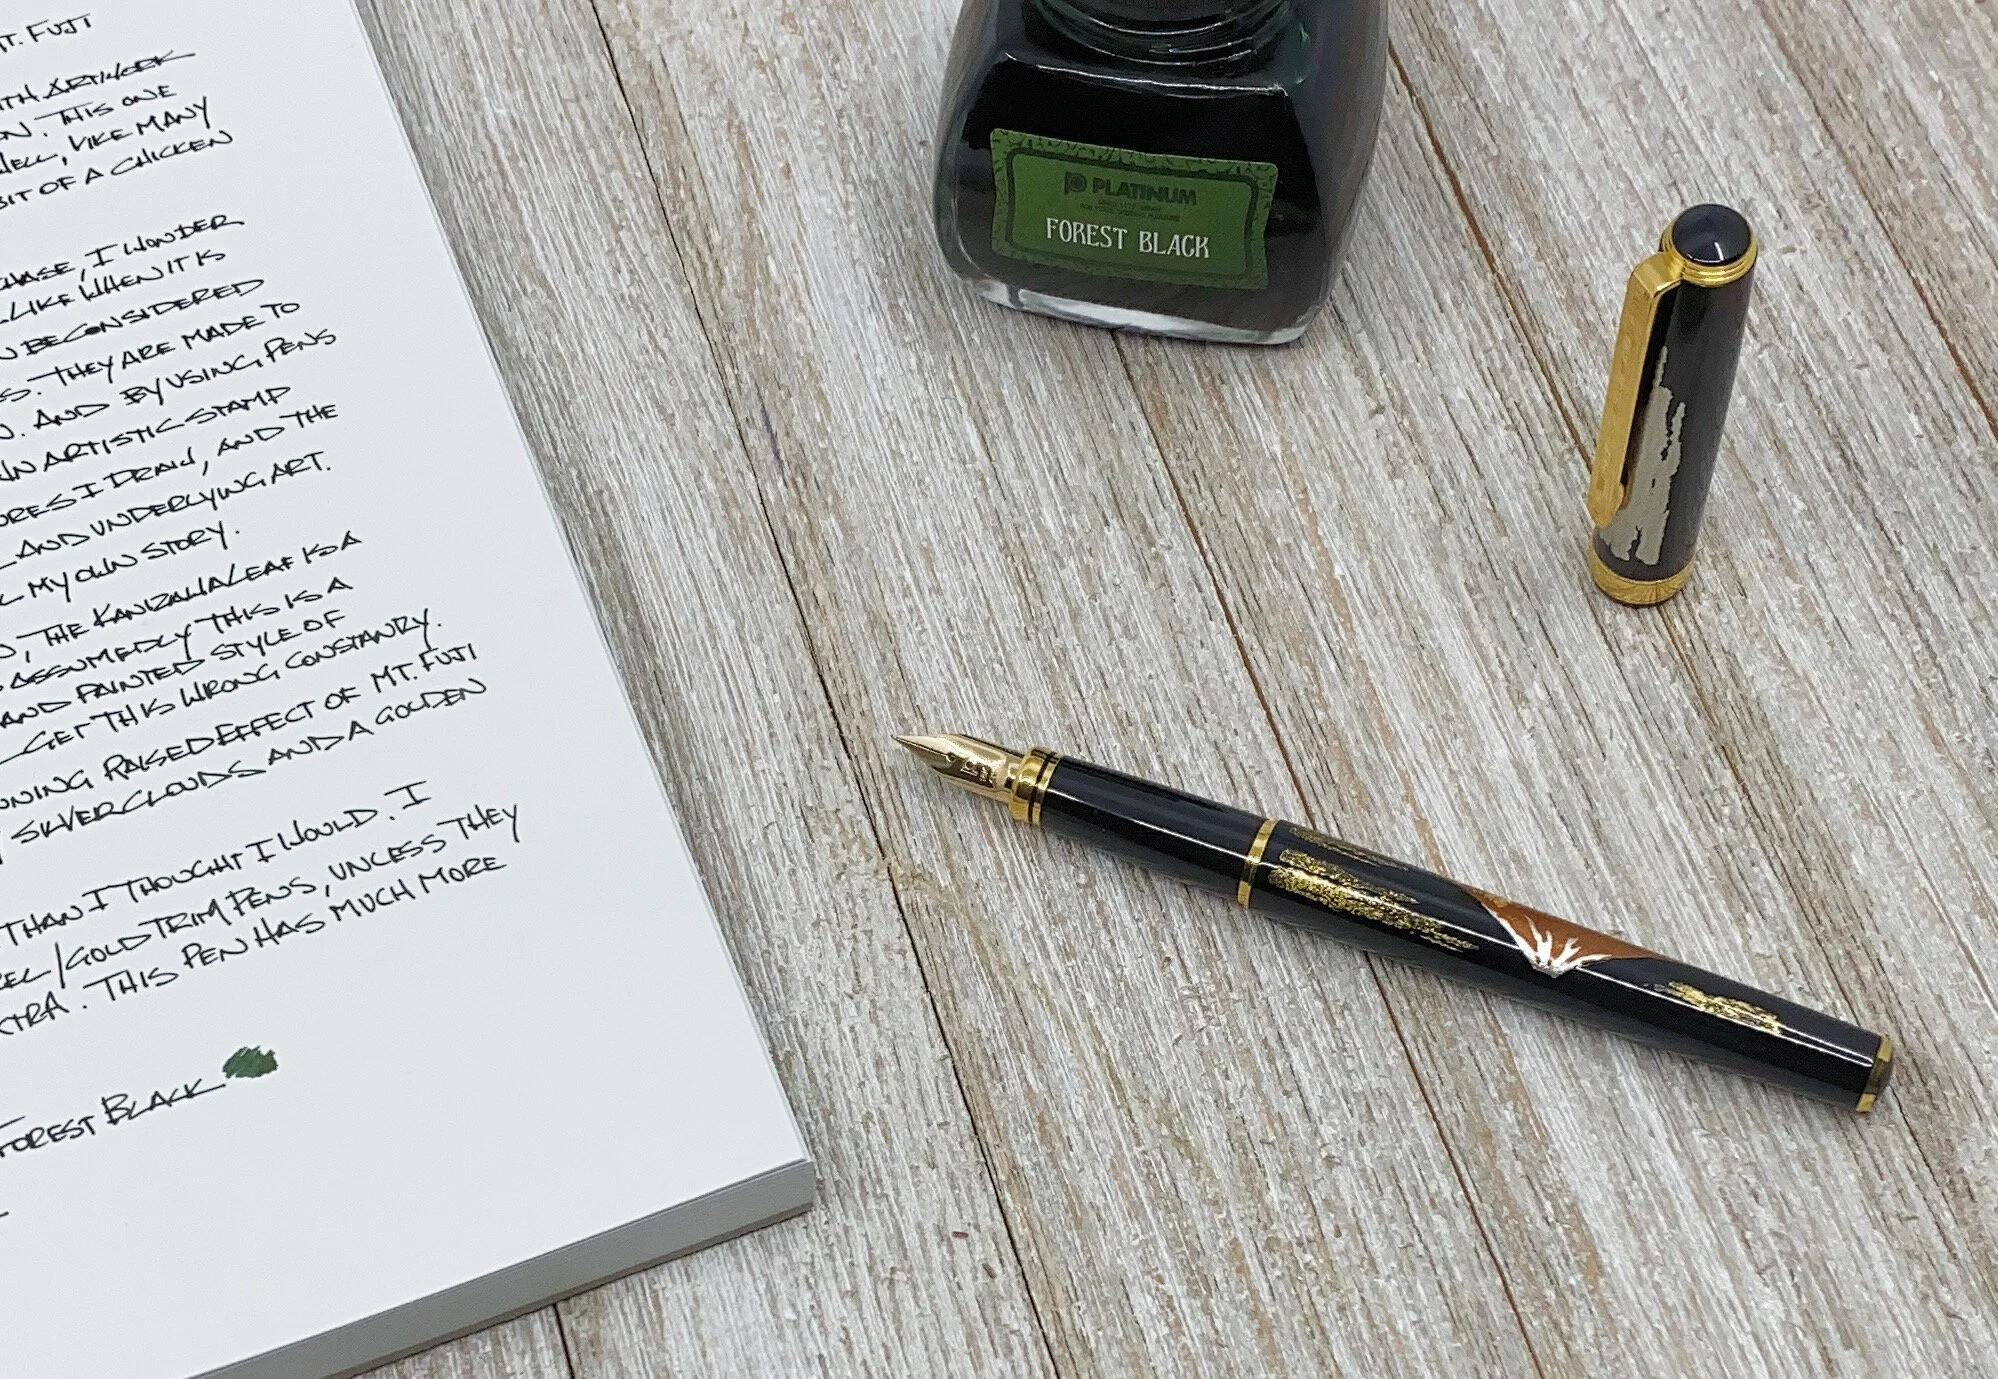 MT. FUJI
WITH ARTWORK
THIS ONE
WELL, LIKE MANY
BIT OF A CHICKEN
I WONDER
LIKE WHEN IT IS
BE CONSIDERED
THEY ARE MADE TO
AND BY USING PENS
ARTISTIC STAMP
I DRAW, AND THE
AND UNDERLYING ART.
MY OWN STORY.
, THE KANIZAWA LEAF IS A
ASSUMEDLY THIS IS A
AND PAINTED STYLE OF
GET THIS WRONG CONSTANTLY.
RAISED EFFECT OF MT. FUJI
SILVER CLOUDS AND A GOLDEN
THAN I THOUGHT I WOULD. I
/GOLD TRIM PENS, UNLESS THEY
. THIS PEN HAS MUCH MORE
FOREST BLACK
PLATINUM
FOREST BLACK